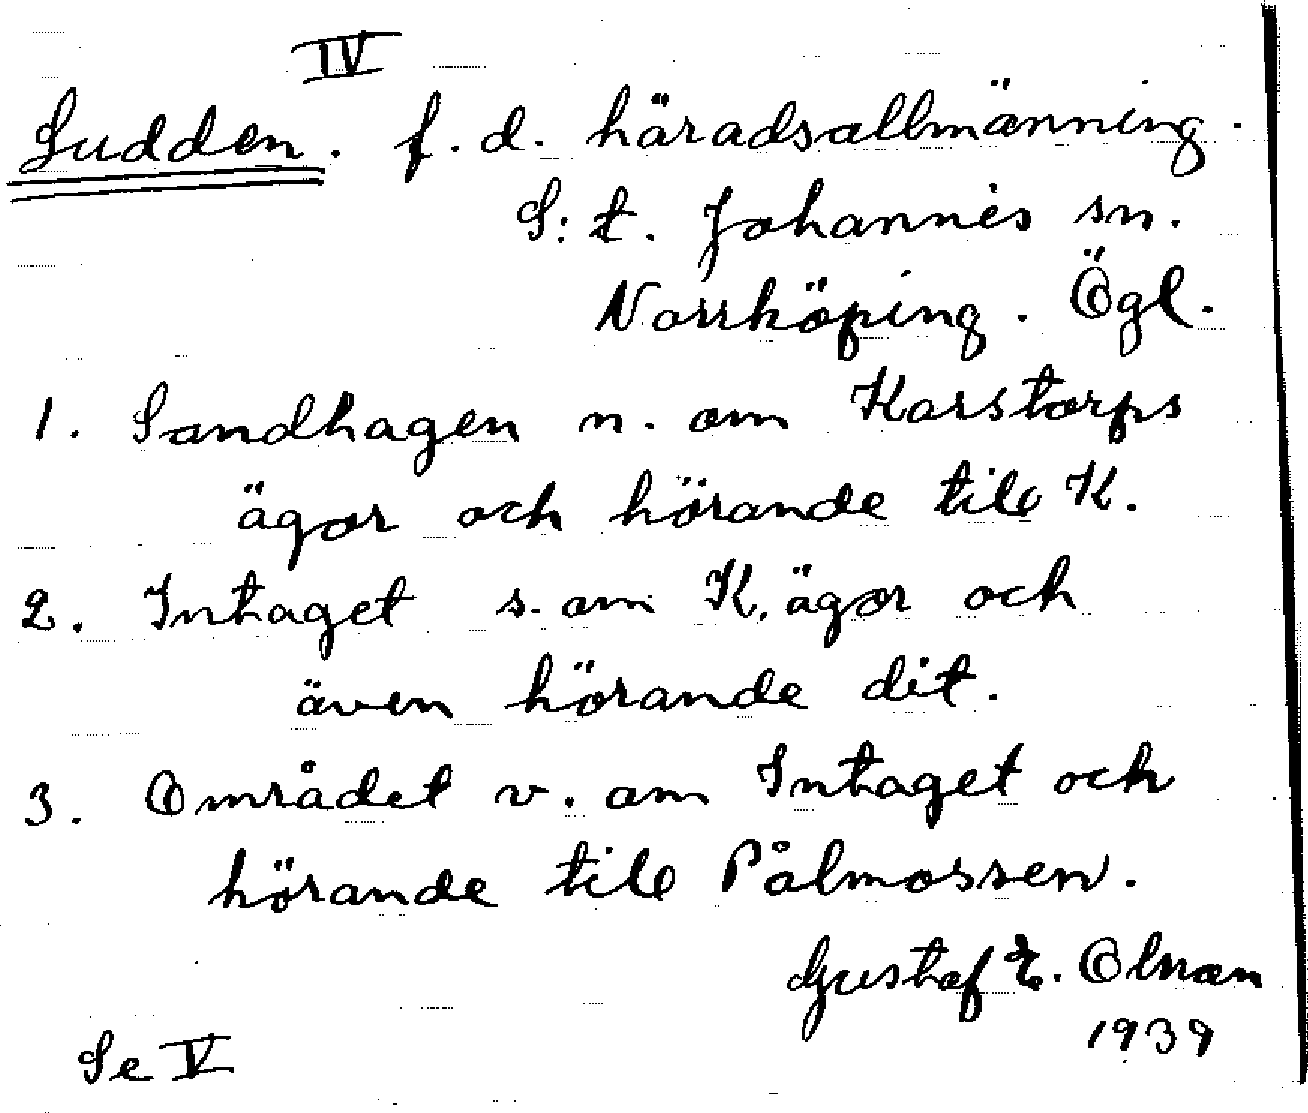 IV
Sudden. f.d. häradsallmänning.
S:t. Johannes sn.
Norrköping. Ögl.
1. Sandhagen n. om Karstorps
ägor och hörande till K.
2. Intaget s. om K. ägor och
även hörande dit.
3. Området v. om Intaget och
hörande till Pålmossen.
Gustaf E. Olson
1939
Se V